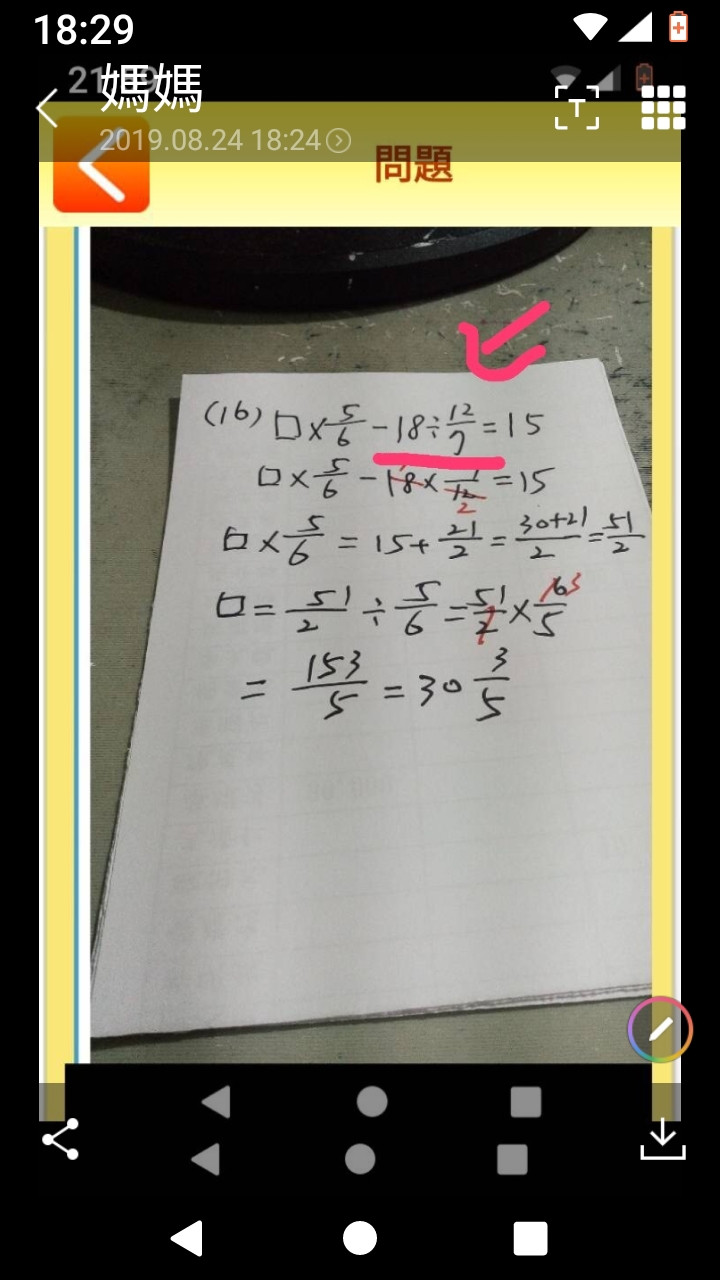 18:29
媽媽
2019.08.24 18:24
問題
(16) □×5/6-18÷12/7=15
□×5/6-18×7/12=15
2
□×5/6=15+21/2=30+21/2=51/2
□=51/2÷5/6=51/2×6/5
3
=153/5=30 3/5